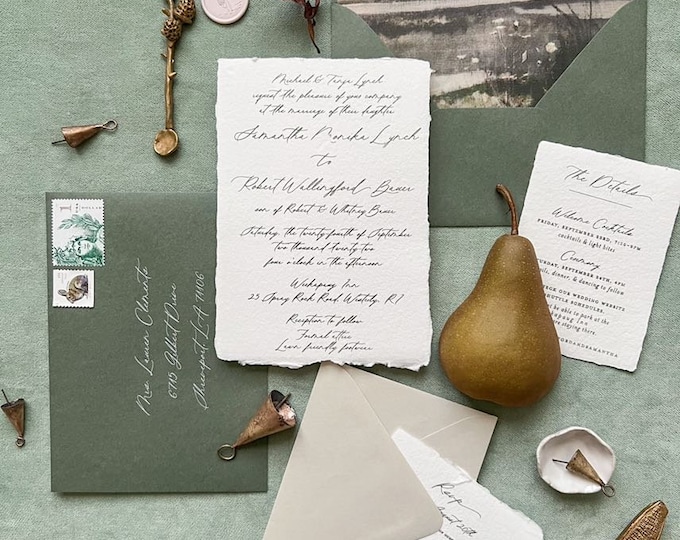 Michael & Tanya Lynch
request the pleasure of your company
at the marriage of their daughter
Samantha Monika Lynch
to
Robert Wallingford Bauer
son of Robert & Whitney Bauer
Saturday, the twenty fourth of September
two thousand twenty two
four o'clock in the afternoon
Weekapaug Inn
25 Spray Rock Road Westerly, RI
Reception to follow
Formal attire
Lawn friendly footwear
Lauren Clemente
6715 Gilbert Drive
Shreveport LA 71106
The Details
Welcome Cocktails
FRIDAY, SEPTEMBER 23RD,
cocktails & light bites
Ceremony
SEPTEMBER 24TH, 4PM
dinner, & dancing to follow
OUR WEDDING WEBSITE
SHUTTLE SCHEDULES.
be able to park at the
Inn
staying there.
ANDSAMANTHA
Rsvp
August